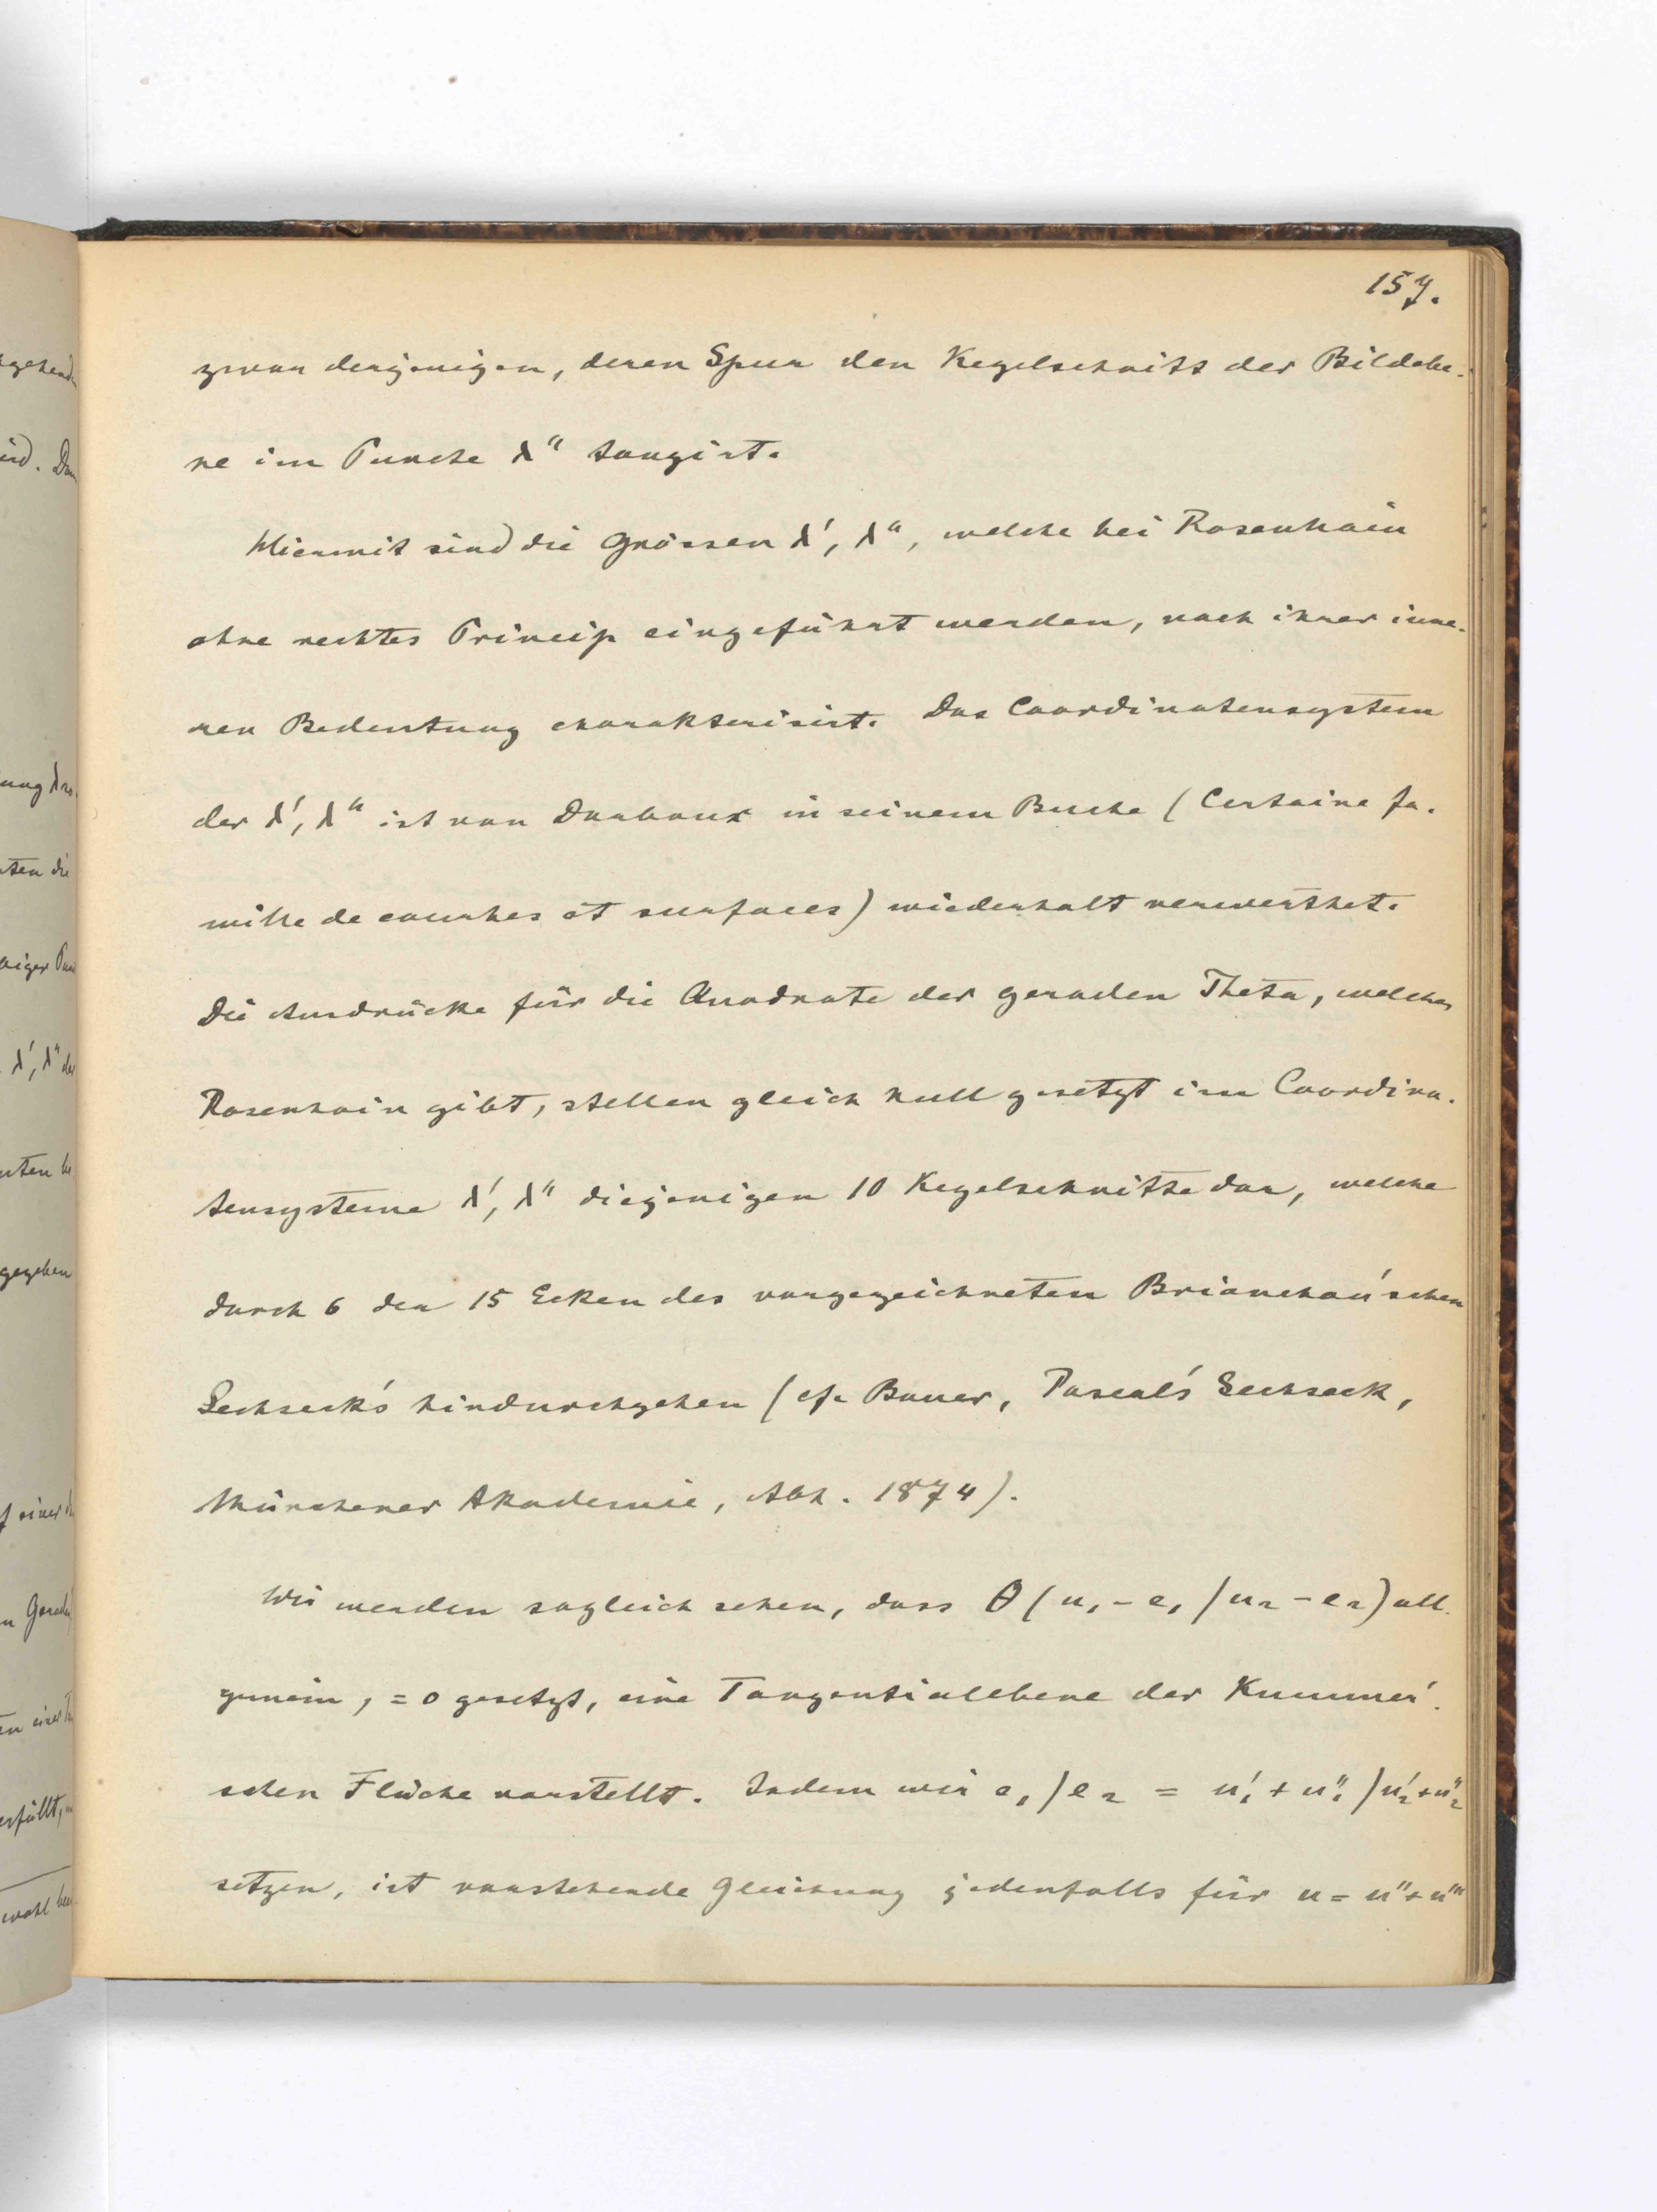 157.
zwar derjenigen, deren Spur den Kegelschnitt der Bildebe-
ne im Puncte λ" tangirt.
Hiermit sind die Grössen λ', λ", welche bei Rosenhain
ohne rechtes Princip eingeführt werden, nach ihrer inne-
ren Bedeutung charakterisirt. Das Coordinatensystem
der λ', λ" ist von Darboux in seinem Buche (Certaine fa-
mille de courbes et surfaces) wiederholt verwerthet.
Die Ausdrücke für die Quadrate der geraden Theta, welche
Rosenhain gibt, stellen gleich null gesetzt im Coordina-
tensysteme λ', λ" diejenigen 10 Kegelschnitte dar, welche
durch 6 der 15 Ecken des vorgezeichneten Brianchon'schen
Sechseck's hindurchgehen (cf. Bauer, Pascal's Sechseck,
Münchener Akademie, Abh. 1874).
Wir werden sogleich sehen, dass θ(u₁-e₁/u₂-e₂) all-
gemein, =0 gesetzt, eine Tangentialebene der Kummer'-
schen Fläche vorstellt. Indem wir e₁/e₂ = u'₁+u"₁/u'₂+u"₂
setzen, ist vorstehende Gleichung jedenfalls für u = u"+u'"
gehend
ird. Dan
ten die
λ', λ" der
gegeben
f einer
erfüllt,
wohl